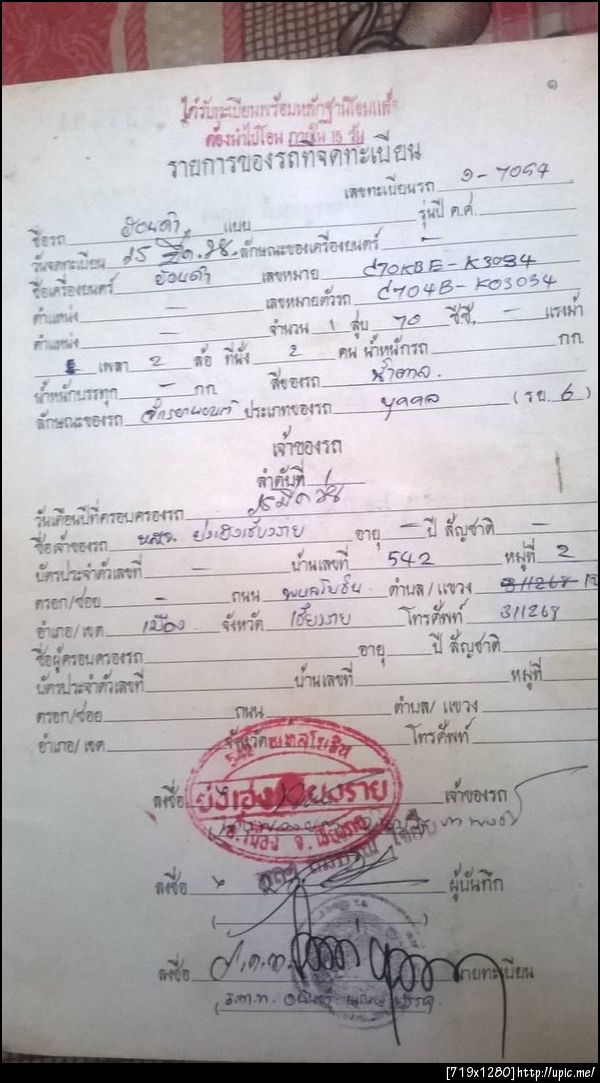 ๑
ได้รับทะเบียนพร้อมหลักฐานโอนแล้ว
ต้องนำไปโอน ภายใน 15 วัน
รายการของรถที่จดทะเบียน
เลขทะเบียนรถ ๑-7054
ชื่อรถ ฮอนด้า แบบ รุ่นปี ค.ศ. -
วันจดทะเบียน ลักษณะของเครื่องยนต์ -
ชื่อเครื่องยนต์ ฮอนด้า เลขหมาย C70KBE-K3034
ตำแหน่ง - เลขหมายตัวรถ C704B-K03034
ตำแหน่ง - จำนวน 1 สูบ 70 ซีซี. - แรงม้า
เพลา 2 ล้อ ที่นั่ง 2 คน น้ำหนักรถ กก
น้ำหนักบรรทุก - กก สีของรถ น้ำตาล
ลักษณะของรถ จักรยานยนต์ ประเภทของรถ บุคคล (รย. 6)
เจ้าของรถ
ลำดับที่ 1
วันเดือนปีที่ครอบครองรถ
ชื่อเจ้าของรถ หสจ. ย่งเฮงเชียงราย อายุ - ปี สัญชาติ -
บัตรประจำตัวเลขที่ - บ้านเลขที่ 542 หมู่ที่ 2
ตรอก/ซอย - ถนน พหลโยธิน ตำบล/แขวง
อำเภอ/เขต เมือง จังหวัด เชียงราย โทรศัพท์ 311269
ชื่อผู้ครอบครองรถ อายุ ปี สัญชาติ
บัตรประจำตัวเลขที่ บ้านเลขที่ หมู่ที่
ตรอก/ซอย ถนน ตำบล/แขวง
อำเภอ/เขต จังหวัด โทรศัพท์
พหลโยธิน
ลงชื่อ ย่งเฮงเชียงราย เจ้าของรถ
ลงชื่อ ผู้บันทึก
ลงชื่อ นายทะเบียน
[719x1280]http://upic.me/